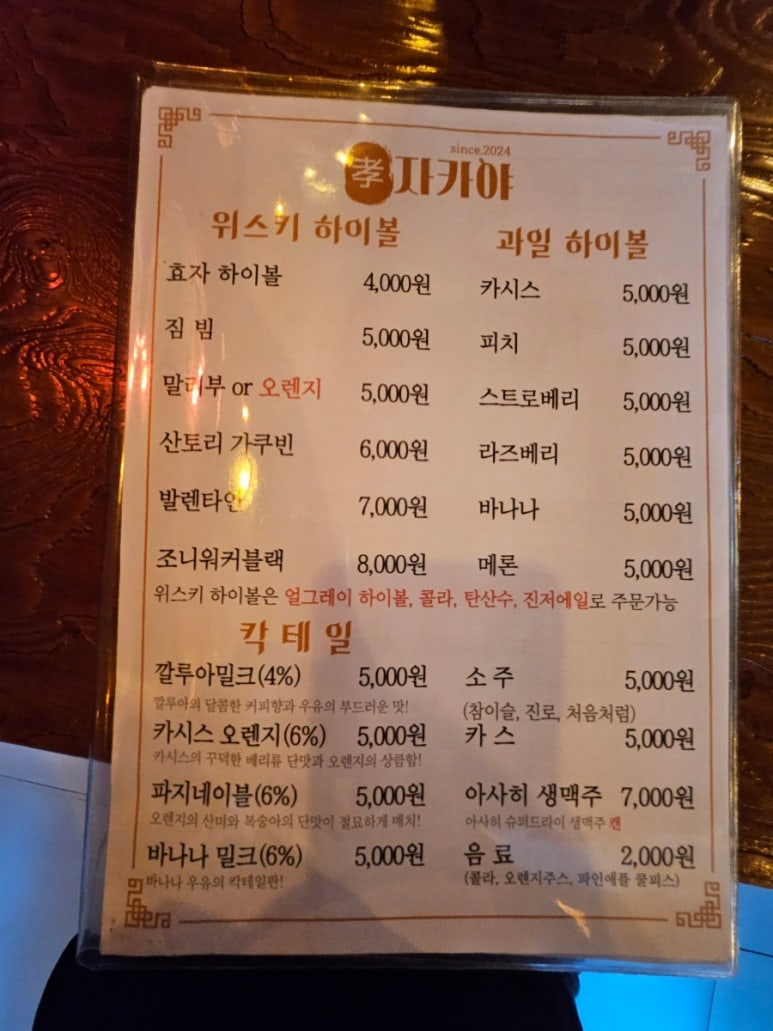 since.2024
孝자카야
위스키 하이볼
효자 하이볼 4,000원
짐 빔 5,000원
말리부 or 오렌지 5,000원
산토리 가쿠빈 6,000원
발렌타인 7,000원
조니워커블랙 8,000원
과일 하이볼
카시스 5,000원
피치 5,000원
스트로베리 5,000원
라즈베리 5,000원
바나나 5,000원
메론 5,000원
위스키 하이볼은 얼그레이 하이볼, 콜라, 탄산수, 진저에일로 주문가능
칵테일
깔루아밀크(4%) 5,000원
깔루아의 달콤한 커피향과 우유의 부드러운 맛!
카시스 오렌지(6%) 5,000원
카시스의 꾸덕한 베리류 단맛과 오렌지의 상큼함!
파지네이블(6%) 5,000원
오렌지의 산미와 복숭아의 단맛이 절묘하게 매치!
바나나 밀크(6%) 5,000원
바나나 우유의 칵테일판!
소주 5,000원
(참이슬, 진로, 처음처럼)
카스 5,000원
아사히 생맥주 7,000원
아사히 슈퍼드라이 생맥주 캔
음료 2,000원
(콜라, 오렌지주스, 파인애플 쿨피스)